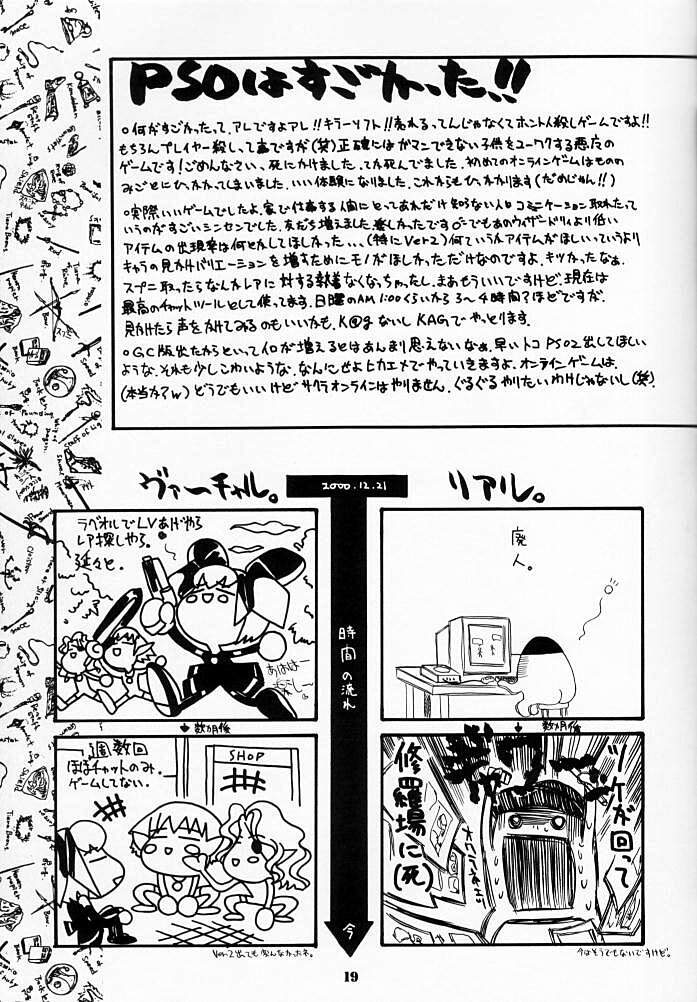 PSOはすごかった!!
○何がすごかったって、アレですよアレ!!キラーソフト!!売れるってんじゃなくてホントに人殺しゲームですよ!!
もちろんプレイヤー殺しって事ですが(笑)正確にはガマンできない子供をユーワクする悪魔の
ゲームです!ごめんなさい、死にかけました。てか死んでました。初めてのオンラインゲームはものの
みごとにひっかかってしまいました。いい体験になりました。これからもひっかかります(だめじゃん!!)
○実際いいゲームでしたよ。家で仕事する人間にとってあれだけ知らない人とコミュニケーション取れたって
いうのがすごいシンセンでした。友だち増えました。楽しかったです。でもあのウィザードリィより低い
アイテムの出現率は何とかしてほしかった...(特にVer2)何ていうかアイテムがほしいっていうより
キャラの見かけバリエーションを増すためにモノがほしかっただけなのですよ。キツかったなぁ。
スグに取ったらなんかレアに対する執着なくなっちゃったし。まあもういいですけど。現在は
最高のチャットツールとして使ってます。日曜のAM1:00くらいから3〜4時間?ほどですが。
見かけたら声をかけてみるのもいいかも。K@gないしKAGでやっとります。
○GC版出たからといって人口が増えるとはあんまり思えないなぁ。早いトコPSO2出してほしい
ような。それも少しこわいような。なんにせよヒカエメでやっていきますよ。オンラインゲームは。
(本当か?w)どうでもいいけどサクラオンラインはやりません。ぐるぐるやりたいわけじゃないし(笑)。
ヴァーチャル。
2000.12.21
リアル。
ラベオルでLVあげやら
レア探しやら。
延々と。
あはは〜
廃人。
時間の流れ
数ヵ月後
数ヵ月後
週数回
ほぼチャットのみ。
ゲームしてない。
SHOP
ツケが回って
修羅場に(死)
今
Ver.2出ても変んなかったネ。
今はそうでもないですけど。
19